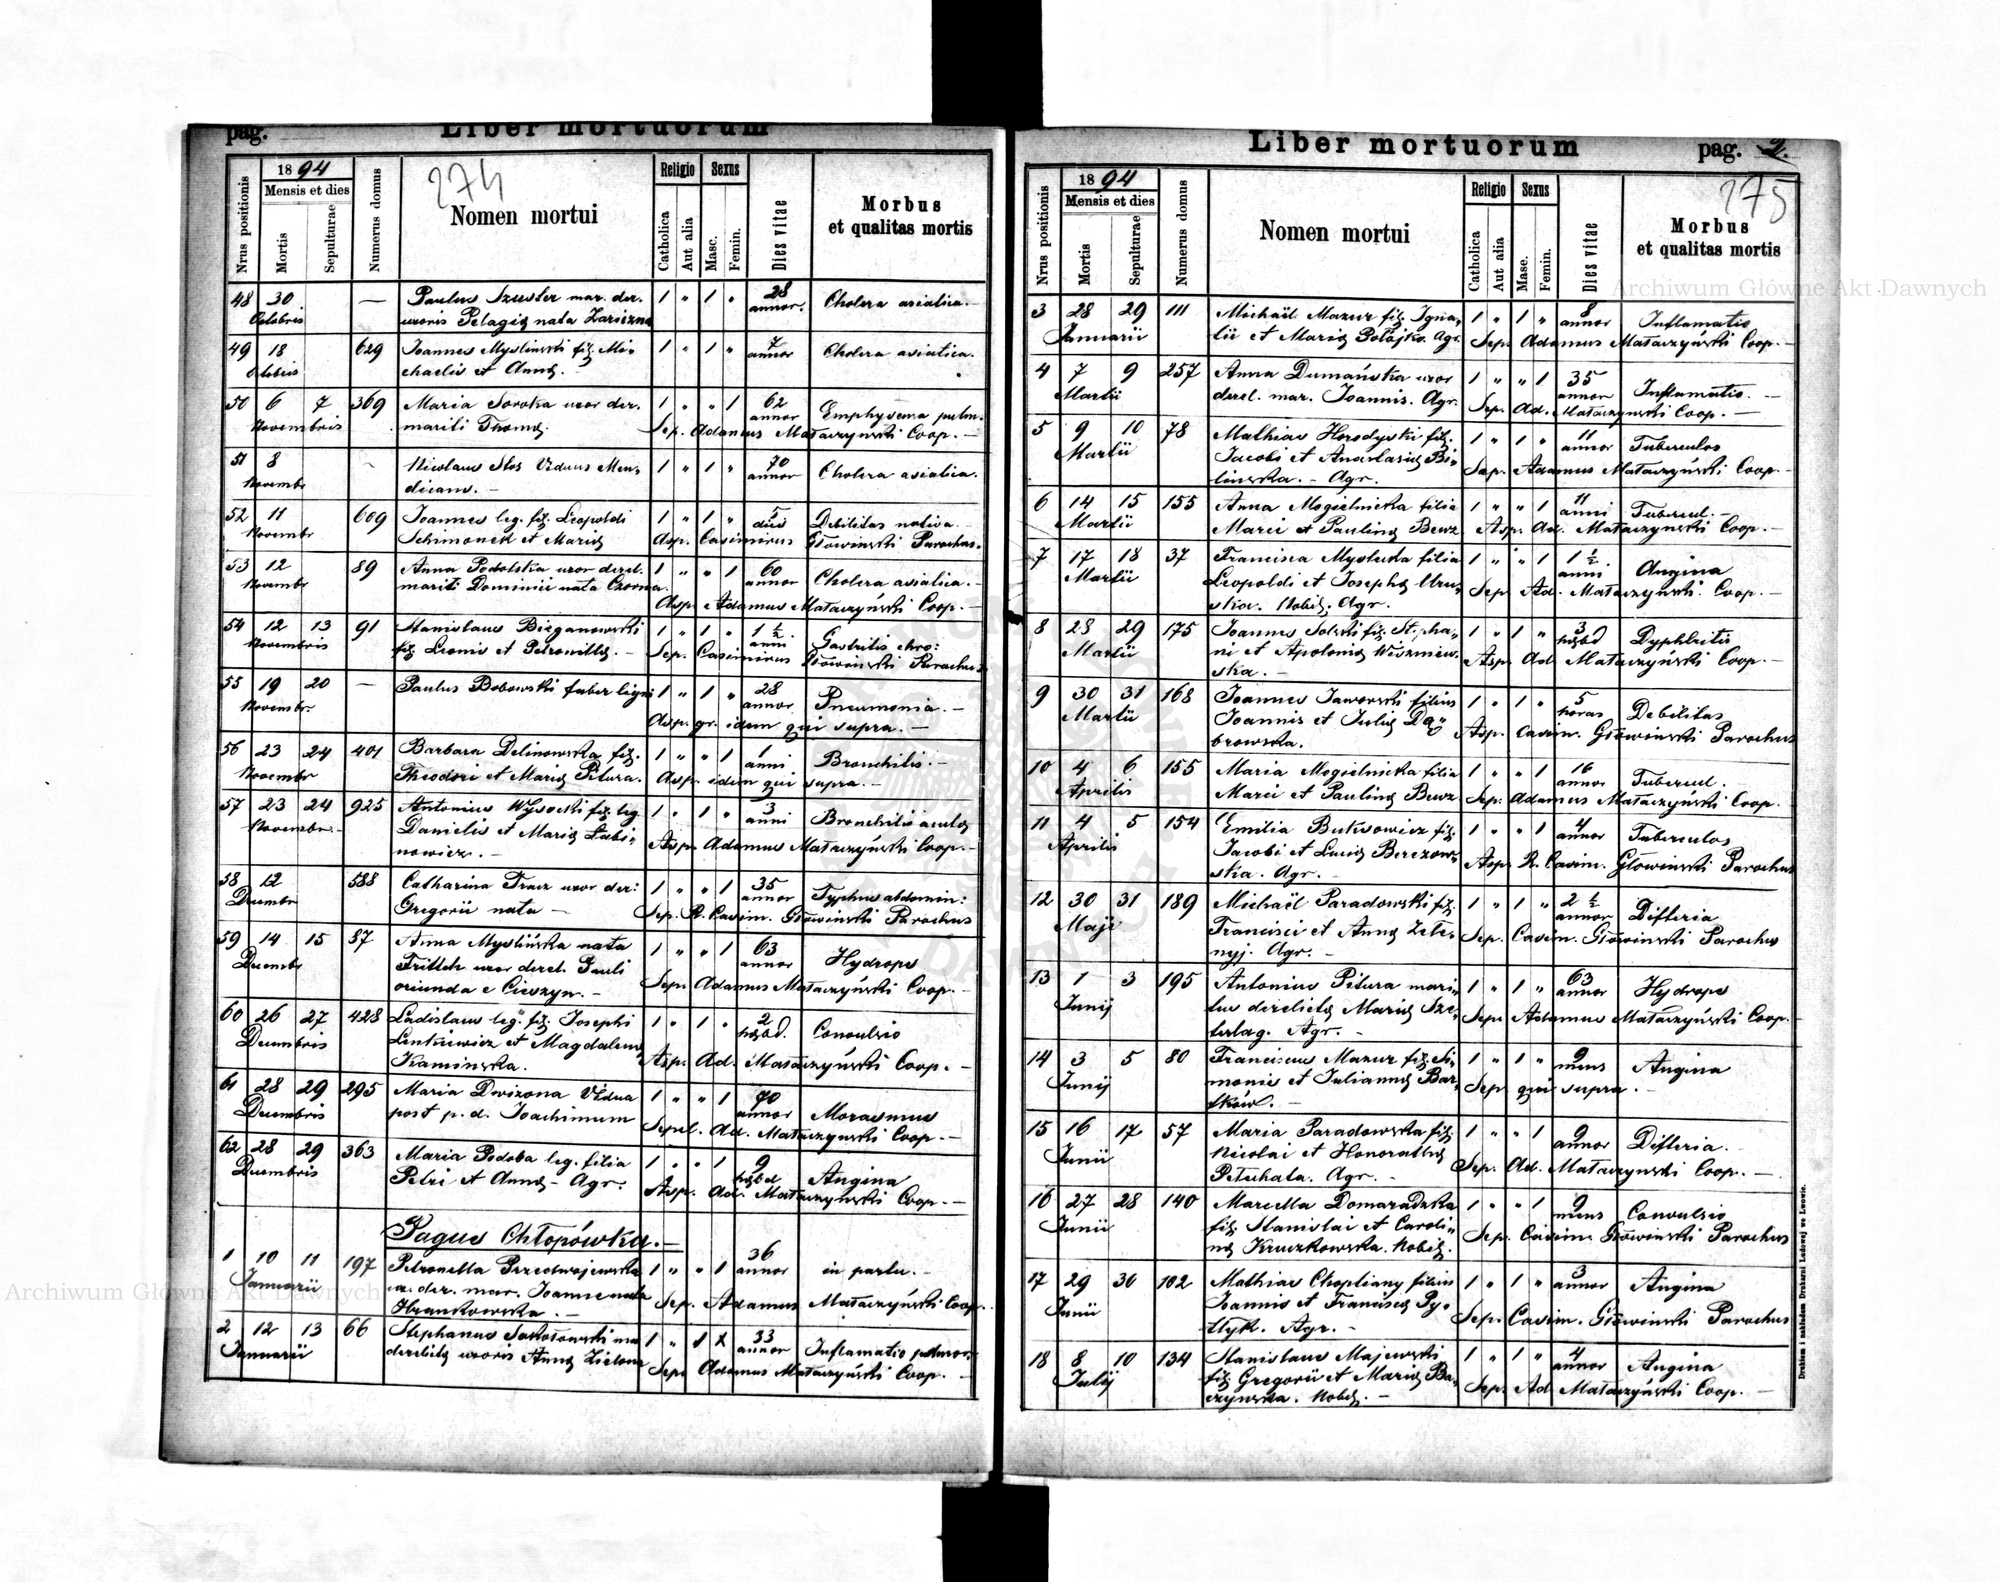 pag.
Liber mortuorum
274
Nrus positionis
1894
Mensis et dies
Mortis
Sepulturae
Numerus domus
Nomen mortui
Religio
Catholica
Aut alia
Sexus
Masc.
Femin.
Dies vitae
Morbus
et qualitas mortis
48 30 — Paulus Szuster mar. der. 1 " 1 " 28 Cholera asiatica. —
Octobris uxoris Pelagią nata Zariczna annor.
49 18 629 Joannes Mysliński fil. Mi- 1 " 1 " 7 Cholera asiatica.
Octobris chaelis et Annę. annor
50 6 7 369 Maria Soroka uxor der. 1 " " 1 62 Emphysema pulm.
Novembris mariti Thomę. annor
Sep. Adamus Mataczyński Coop. —
51 8 Nicolaus Stos Viduus Men- 1 " 1 " 70 Cholera asiatica.
Novembr dicans. — annor
52 11 609 Joannes leg. fil. Leopoldi 1 " 1 " 5 Debilitas nativa. —
Novembr Schimonek et Marię dies
Asp. Casimirus Głowinski Parochus.
53 12 89 Anna Podolska uxor derel. 1 " " 1 60 Cholera asiatica. —
Novembr mariti Dominici nata Czorna. annor
Asp. Adamus Mataczyński Coop. —
54 12 13 91 Stanislaus Bieganowski 1 " 1 " 1 ½ Gastritis chro:
Novembris fil. Leonis et Petronillę. — anni
Sep. Casimirus Głowinski Parochus
55 19 20 — Paulus Bobowski faber ligni 1 " 1 " 28 Pneumonia. —
Novembr. annor
Asp. gr. idem qui supra. —
56 23 24 401 Barbara Delinowska fil. 1 " " 1 1 Bronchitis. —
Novembr Theodori et Marię Pitura. anni
Asp. idem qui supra. —
57 23 24 925 Antonius Wysocki fil. leg. 1 " 1 " 3 Bronchitis acuta
Novembr. Danielis et Marię Łabi- anni
nowicz. — Asp. Adamus Mataczyński Coop. —
58 12 588 Catharina Tracz uxor der: 1 " " 1 35 Typhus abdomin:
Decembr Gregorii nata — annor
Sep. R. Casim. Głowinski Parochus
59 14 15 87 Anna Myslińska nata 1 " " 1 63 Hydrops
Decembr Trittek uxor derel. Pauli annor
oriunda e Cieszyn. — Sep. Adamus Mataczyński Coop. —
60 26 27 428 Ladislaus leg. fil. Josephi 1 " 1 " 2 Convulsio
Decembris Linkiewicz et Magdalenę hebd.
Kaminska. Asp. Ad. Mataczyński Coop. —
61 28 29 295 Maria Dwizona Vidua 1 " " 1 70 Morasmus
Decembris post p. d. Joachimum annor
Sepel. Ad. Mataczynski Coop. —
62 28 29 363 Maria Podoba leg. filia 1 " " 1 9 Angina
Decembris Petri et Annę — Agr. hebd
Asp. Ad. Mataczynski Coop. —
Pagus Chłopówka. —
1 10 11 197 Petronella Przedwojewska 1 " " 1 36 in partu. —
Januarii ux. der. mar. Joannis nata annor
Hrankowska. — Sep. Adamus Mataczyński Coop.
2 12 13 66 Stephanus Sokołowski ma 1 " 1 33 Inflamatio pulmon:
Januarii derelictę uxoris Annę Zielona annor
Sep. Adamus Mataczyński Coop. —
Liber mortuorum
pag. 2.
275
Nrus positionis
1894
Mensis et dies
Mortis
Sepulturae
Numerus domus
Nomen mortui
Religio
Catholica
Aut alia
Sexus
Masc.
Femin.
Dies vitae
Morbus
et qualitas mortis
3 28 29 111 Michaël Mazur fil. Igna- 1 " 1 " 8 Inflamatio
Januarii tii et Marię Potajko. Agr. annor
Sep. Adamus Mataczyński Coop. —
4 7 9 257 Anna Dumańska uxor 1 " " 1 35 Inflamatio. —
Martii derel. mar. Joannis. Agr. annor
Sep. Ad. Mataczynski Coop. —
5 9 10 78 Mathias Horodyski fil. 1 " 1 " 11 Tuberculos
Martii Jacobi et Anastasię Bi- annor
linska. — Agr. Sep. Adamus Mataczyński Coop. —
6 14 15 155 Anna Mogielnicka filia 1 " " 1 11 Tubercul. —
Martii Marci et Paulinę Bewz anni
Asp. Ad. Mataczynski Coop. —
7 17 18 37 Francisca Myslicka filia 1 " " 1 1 ½ Angina
Martii Leopoldi et Josephę Uru- anni
ska. Nobil. Agr. Sep. Ad. Mataczyński Coop. —
8 28 29 175 Joannes Solski fil. Stepha- 1 " 1 " 3 Dyphteitis
Martii ni et Apolonię Wiszniew- hebd
ska. — Asp. Ad. Mataczyński Coop. —
9 30 31 168 Joannes Jaworski filius 1 " 1 " 5 Debilitas
Martii Joannis et Julię Dą- horas
browska. Asp. Casim. Głowinski Parochus
10 4 6 155 Maria Mogielnicka filia 1 " " 1 16 Tubercul.
Aprilis Marci et Paulinę Bewz. annor
Sep. Adamus Mataczyński Coop.
11 4 5 154 Emilia Buksowicz fil. 1 " " 1 4 Tuberculos
Aprilis Jacobi et Lucię Berezow- annor
ska. Agr. — Asp. R. Casim. Głowinski Parochus
12 30 31 189 Michaël Paradowski fil. 1 " 1 " 2 ½ Difteria
Maji Francisci et Annę Zele- annor
nyj. Agr. — Sep. Casim. Głowinski Parochus
13 1 3 195 Antonius Pitura mari- 1 " 1 " 63 Hydrops
Junij tus derelictę Marię Sze- annor
terlag. Agr. — Sep. Adamus Mataczyński Coop. —
14 3 5 80 Franciscus Mazur fil. Si- 1 " 1 " 9 Angina
Junij monis et Juliannę Bar- mens
tków. — Sep. qui supra. —
15 16 17 57 Maria Paradowska fil. 1 " " 1 9 Difteria.
Junii Nicolai et Honorathę annor
Petuhata. Agr. — Sep. Ad. Mataczynski Coop. —
16 27 28 140 Marcella Domaradzka 1 " " 1 9 Convulsio
Junii fil. Stanislai et Caroli- mens
nę Kruczkowska. Nobil. Sep. Casim. Głowinski Parochus
17 29 30 102 Mathias Chopliany filius 1 " 1 " 3 Angina
Junii Joannis et Franciscę Py- annor
tlyk. Agr. — Sep. Casim. Głowinski Parochus
18 8 10 134 Stanislaus Majewski 1 " 1 " 4 Angina
Julij fil. Gregorii et Marię Ba- annor
czynska. Nobil. — Sep. Ad. Mataczyński Coop. —
Drukiem i nakładem Drukarni Ludowej we Lwowie.
Archiwum Główne Akt Dawnych
Archiwum Główne Akt Dawnych